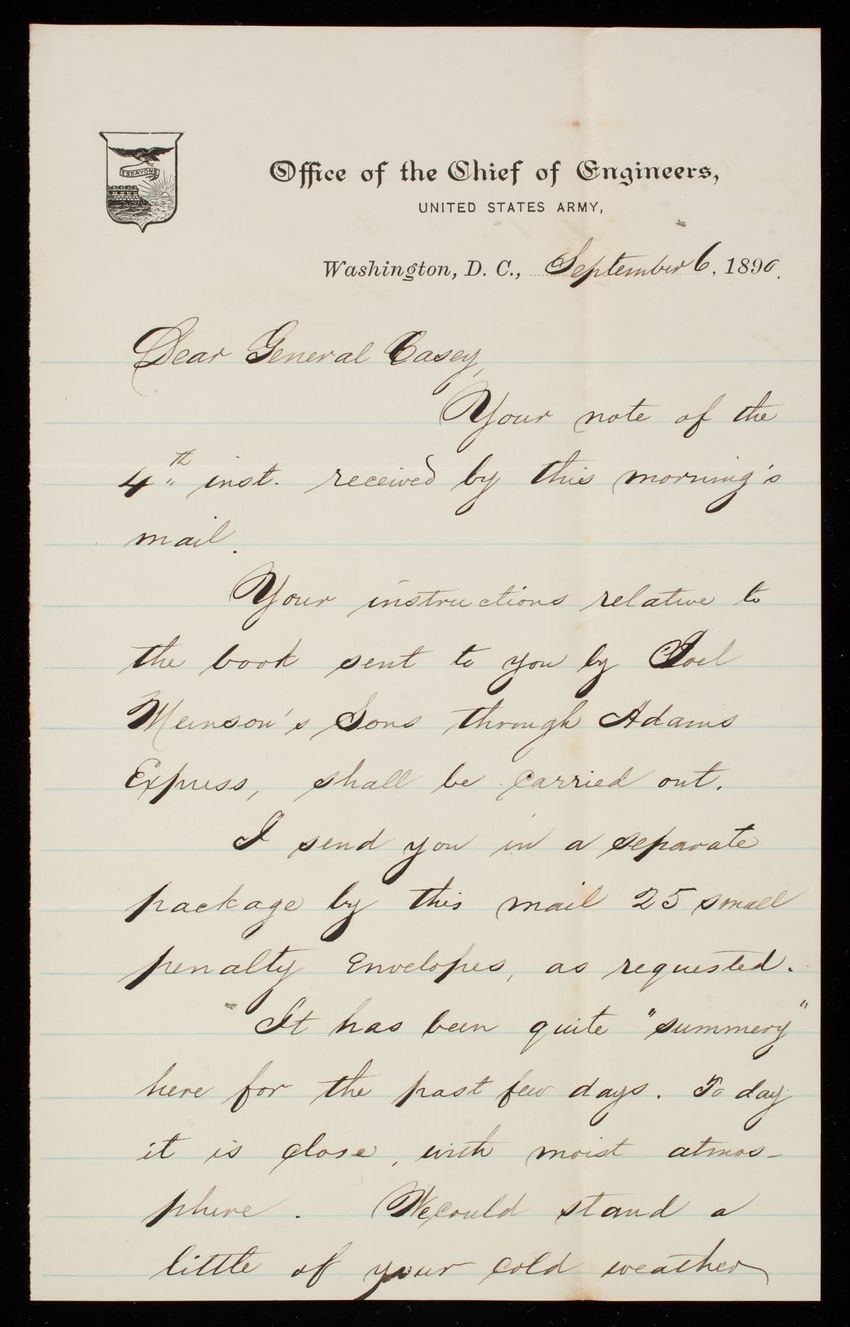 ESSAYONS
Office of the Chief of Engineers,
UNITED STATES ARMY,
Washington, D. C., September 6, 1890.
Dear General Casey,
Your note of the
4th inst. received by this morning's
mail.
Your instructions relative to
the book sent to you by Joel
Munson's Sons through Adams
Express, shall be carried out.
I send you in a separate
package by this mail 25 small
penalty envelopes, as requested.
It has been quite "summery"
here for the past few days. To day
it is close, with moist atmos-
phere. We could stand a
little of your cold weather